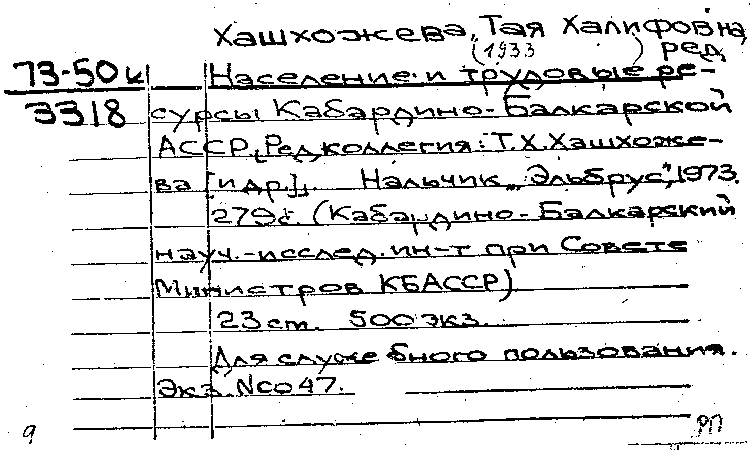 Хашхожева, Тая Халифовна,
(1933 ) ред.
73-50к Население и трудовые ре-
3318 сурсы Кабардино-Балкарской
АССР. [Ред. коллегия: Т.Х. Хашхоже-
ва [и др.]]. Нальчик, "Эльбрус", 1973.
279с. (Кабардино-Балкарский
науч.-исслед. ин-т при Совете
Министров КБАССР)
23 ст. 500 экз.
Для служебного пользования.
Экз. №0047.
9 РП